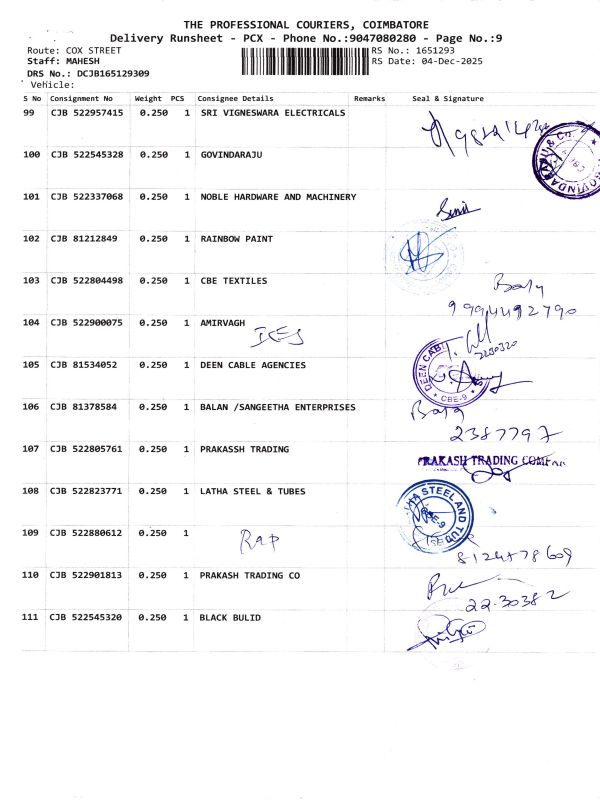 THE PROFESSIONAL COURIERS, COIMBATORE
Delivery Runsheet - PCX - Phone No.:9047080280 - Page No.:9
Route: COX STREET RS No.: 1651293
Staff: MAHESH RS Date: 04-Dec-2025
DRS No.: DCJB165129309
Vehicle:
S No Consignment No Weight PCS Consignee Details Remarks Seal & Signature
99 CJB 522957415 0.250 1 SRI VIGNESWARA ELECTRICALS
100 CJB 522545328 0.250 1 GOVINDARAJU
101 CJB 522337068 0.250 1 NOBLE HARDWARE AND MACHINERY
102 CJB 81212849 0.250 1 RAINBOW PAINT
103 CJB 522804498 0.250 1 CBE TEXTILES
104 CJB 522900075 0.250 1 AMIRVAGH
105 CJB 81534052 0.250 1 DEEN CABLE AGENCIES
DEEN CABL
CBE-9
106 CJB 81378584 0.250 1 BALAN /SANGEETHA ENTERPRISES
2387797
107 CJB 522805761 0.250 1 PRAKASSH TRADING
PRAKASH TRADING
108 CJB 522823771 0.250 1 LATHA STEEL & TUBES
STEEL AND TUB
109 CJB 522880612 0.250 1
Rap
110 CJB 522901813 0.250 1 PRAKASH TRADING CO
111 CJB 522545320 0.250 1 BLACK BULID